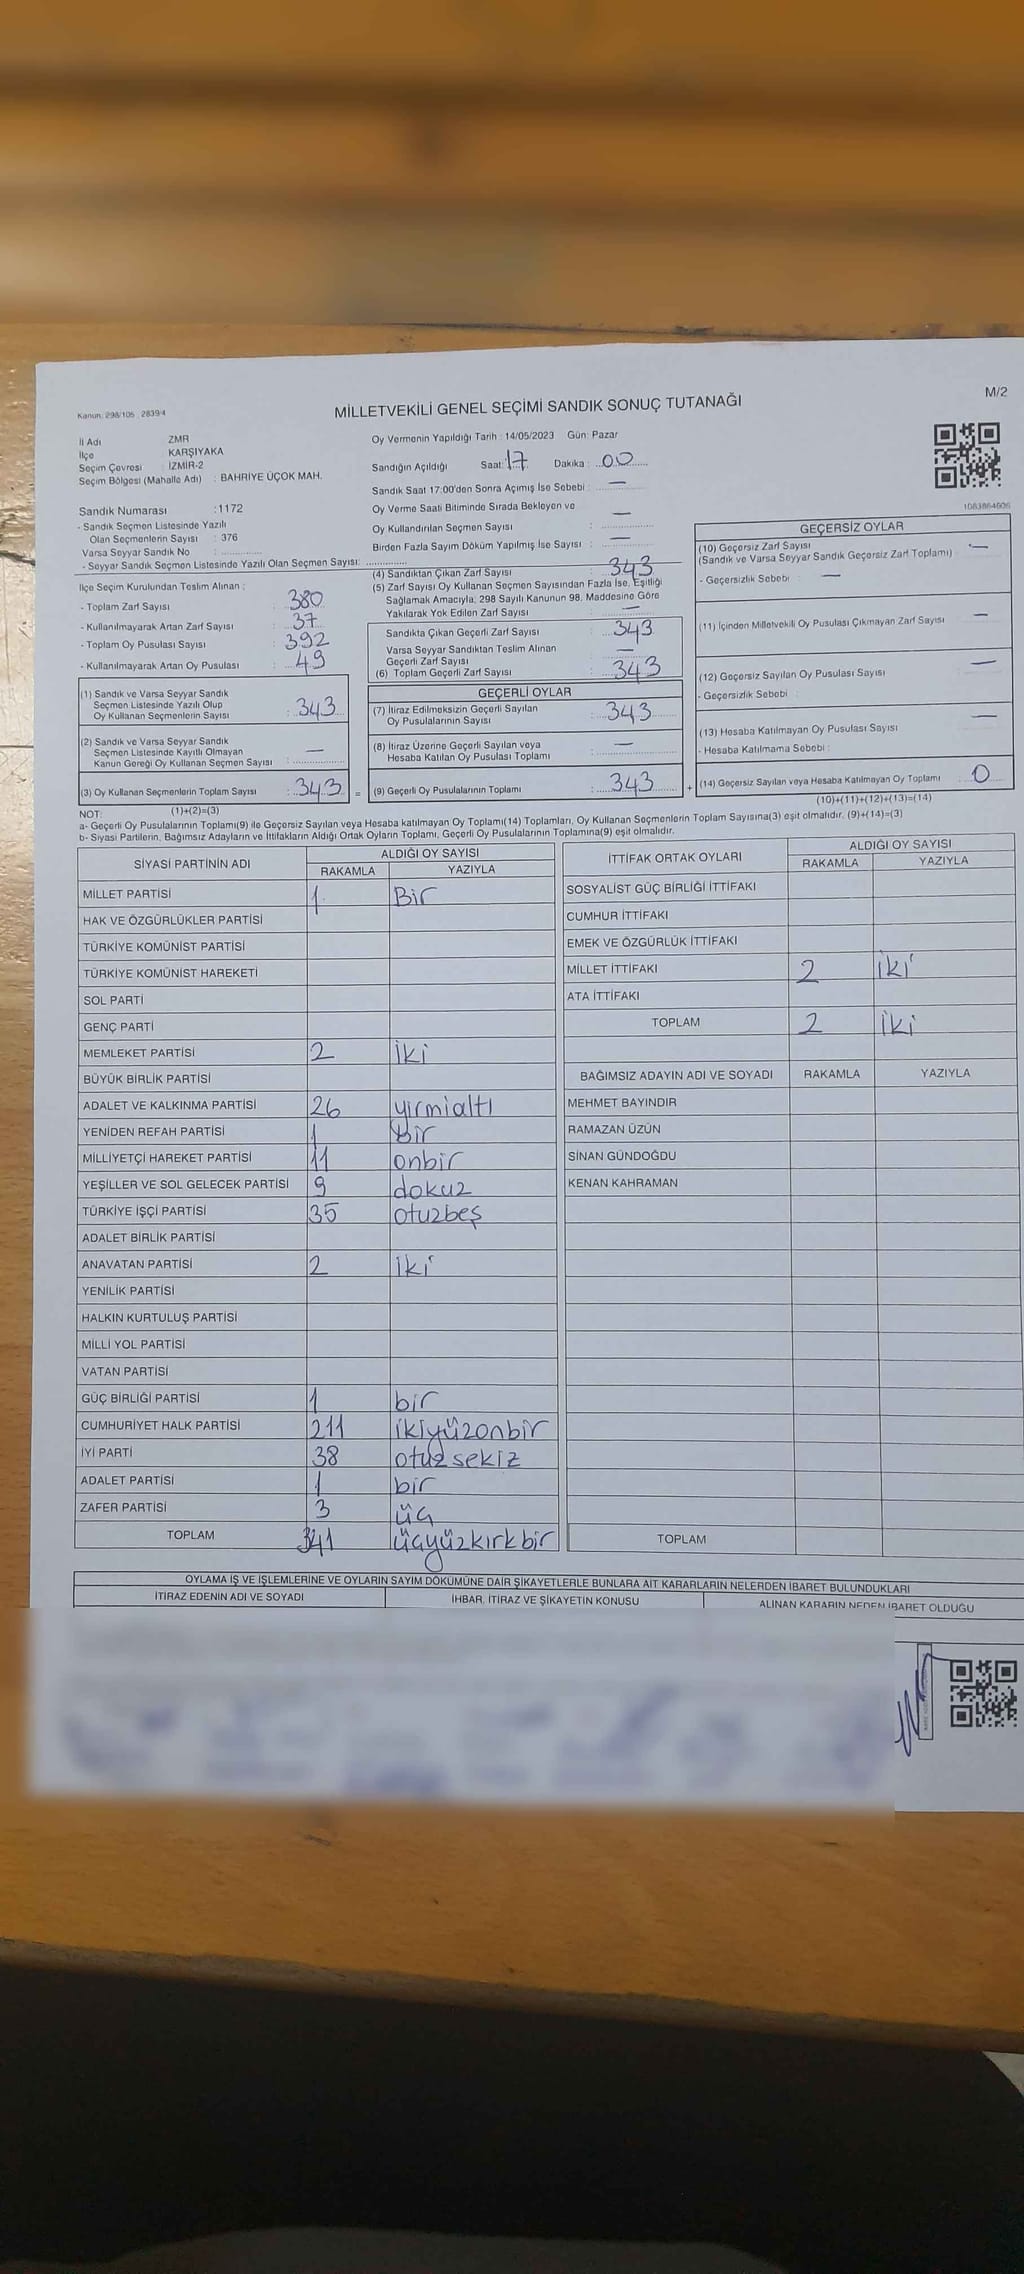 M/2
Kanun: 298/105, 2839/4
MİLLETVEKİLİ GENEL SEÇİMİ SANDIK SONUÇ TUTANAĞI
İl Adı ZMR
İlçe KARŞIYAKA
Seçim Çevresi : İZMİR-2
Seçim Bölgesi (Mahalle Adı) : BAHRİYE ÜÇOK MAH.
Sandık Numarası :1172
- Sandık Seçmen Listesinde Yazılı
Olan Seçmenlerin Sayısı : 376
Varsa Seyyar Sandık No :
- Seyyar Sandık Seçmen Listesinde Yazılı Olan Seçmen Sayısı:
İlçe Seçim Kurulundan Teslim Alınan :
- Toplam Zarf Sayısı : 380
- Kullanılmayarak Artan Zarf Sayısı : 37
- Toplam Oy Pusulası Sayısı : 392
- Kullanılmayarak Artan Oy Pusulası : 49
(1) Sandık ve Varsa Seyyar Sandık
Seçmen Listesinde Yazılı Olup
Oy Kullanan Seçmenlerin Sayısı : 343
(2) Sandık ve Varsa Seyyar Sandık
Seçmen Listesinde Kayıtlı Olmayan
Kanun Gereği Oy Kullanan Seçmen Sayısı : —
(3) Oy Kullanan Seçmenlerin Toplam Sayısı : 343 =
Oy Vermenin Yapıldığı Tarih : 14/05/2023 Gün: Pazar
Sandığın Açıldığı Saat: 17 Dakika : 00
Sandık Saat 17:00'den Sonra Açımış İse Sebebi : —
Oy Verme Saati Bitiminde Sırada Bekleyen ve
Oy Kullandırılan Seçmen Sayısı : —
Birden Fazla Sayım Döküm Yapılmış İse Sayısı : —
(4) Sandıktan Çıkan Zarf Sayısı : 343
(5) Zarf Sayısı Oy Kullanan Seçmen Sayısından Fazla İse, Eşitliği
Sağlamak Amacıyla; 298 Sayılı Kanunun 98. Maddesine Göre
Yakılarak Yok Edilen Zarf Sayısı : —
Sandıkta Çıkan Geçerli Zarf Sayısı : 343
Varsa Seyyar Sandıktan Teslim Alınan
Geçerli Zarf Sayısı : —
(6) Toplam Geçerli Zarf Sayısı : 343
GEÇERLİ OYLAR
(7) İtiraz Edilmeksizin Geçerli Sayılan
Oy Pusulalarının Sayısı : 343
(8) İtiraz Üzerine Geçerli Sayılan veya
Hesaba Katılan Oy Pusulası Toplamı : —
(9) Geçerli Oy Pusulalarının Toplamı : 343 +
1083864606
GEÇERSİZ OYLAR
(10) Geçersiz Zarf Sayısı : —
(Sandık ve Varsa Seyyar Sandık Geçersiz Zarf Toplamı)
- Geçersizlik Sebebi : —
(11) İçinden Milletvekili Oy Pusulası Çıkmayan Zarf Sayısı : —
(12) Geçersiz Sayılan Oy Pusulası Sayısı : —
- Geçersizlik Sebebi :
(13) Hesaba Katılmayan Oy Pusulası Sayısı : —
- Hesaba Katılmama Sebebi :
(14) Geçersiz Sayılan veya Hesaba Katılmayan Oy Toplamı : 0
NOT: (1)+(2)=(3) (10)+(11)+(12)+(13)=(14)
a- Geçerli Oy Pusulalarının Toplamı(9) ile Geçersiz Sayılan veya Hesaba katılmayan Oy Toplamı(14) Toplamları, Oy Kullanan Seçmenlerin Toplam Sayısına(3) eşit olmalıdır. (9)+(14)=(3)
b- Siyasi Partilerin, Bağımsız Adayların ve İttifakların Aldığı Ortak Oyların Toplamı, Geçerli Oy Pusulalarının Toplamına(9) eşit olmalıdır.
SİYASİ PARTİNİN ADI ALDIĞI OY SAYISI
RAKAMLA YAZIYLA
MİLLET PARTİSİ 1 Bir
HAK VE ÖZGÜRLÜKLER PARTİSİ
TÜRKİYE KOMÜNİST PARTİSİ
TÜRKİYE KOMÜNİST HAREKETİ
SOL PARTİ
GENÇ PARTİ
MEMLEKET PARTİSİ 2 iki
BÜYÜK BİRLİK PARTİSİ
ADALET VE KALKINMA PARTİSİ 26 yirmialtı
YENİDEN REFAH PARTİSİ 1 Bir
MİLLİYETÇİ HAREKET PARTİSİ 11 onbir
YEŞİLLER VE SOL GELECEK PARTİSİ 9 dokuz
TÜRKİYE İŞÇİ PARTİSİ 35 otuzbeş
ADALET BİRLİK PARTİSİ
ANAVATAN PARTİSİ 2 iki
YENİLİK PARTİSİ
HALKIN KURTULUŞ PARTİSİ
MİLLİ YOL PARTİSİ
VATAN PARTİSİ
GÜÇ BİRLİĞİ PARTİSİ 1 bir
CUMHURİYET HALK PARTİSİ 211 ikiyüzonbir
İYİ PARTİ 38 otuzsekiz
ADALET PARTİSİ 1 bir
ZAFER PARTİSİ 3 üç
TOPLAM 341 üçyüzkırkbir
İTTİFAK ORTAK OYLARI ALDIĞI OY SAYISI
RAKAMLA YAZIYLA
SOSYALİST GÜÇ BİRLİĞİ İTTİFAKI
CUMHUR İTTİFAKI
EMEK VE ÖZGÜRLÜK İTTİFAKI
MİLLET İTTİFAKI 2 iki
ATA İTTİFAKI
TOPLAM 2 iki
BAĞIMSIZ ADAYIN ADI VE SOYADI RAKAMLA YAZIYLA
MEHMET BAYINDIR
RAMAZAN ÜZÜN
SİNAN GÜNDOĞDU
KENAN KAHRAMAN
TOPLAM
OYLAMA İŞ VE İŞLEMLERİNE VE OYLARIN SAYIM DÖKÜMÜNE DAİR ŞİKAYETLERLE BUNLARA AİT KARARLARIN NELERDEN İBARET BULUNDUKLARI
İTİRAZ EDENİN ADI VE SOYADI İHBAR, İTİRAZ VE ŞİKAYETİN KONUSU ALINAN KARARIN NEDEN İBARET OLDUĞU